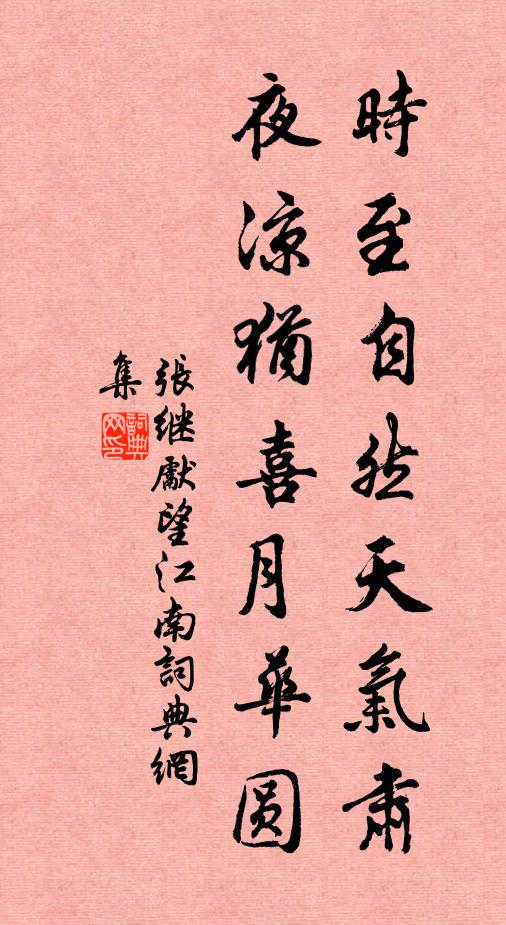 時至自然天氣肅
夜凉猶喜月華圆
張继獻望江南詞典網
集
詞典网印